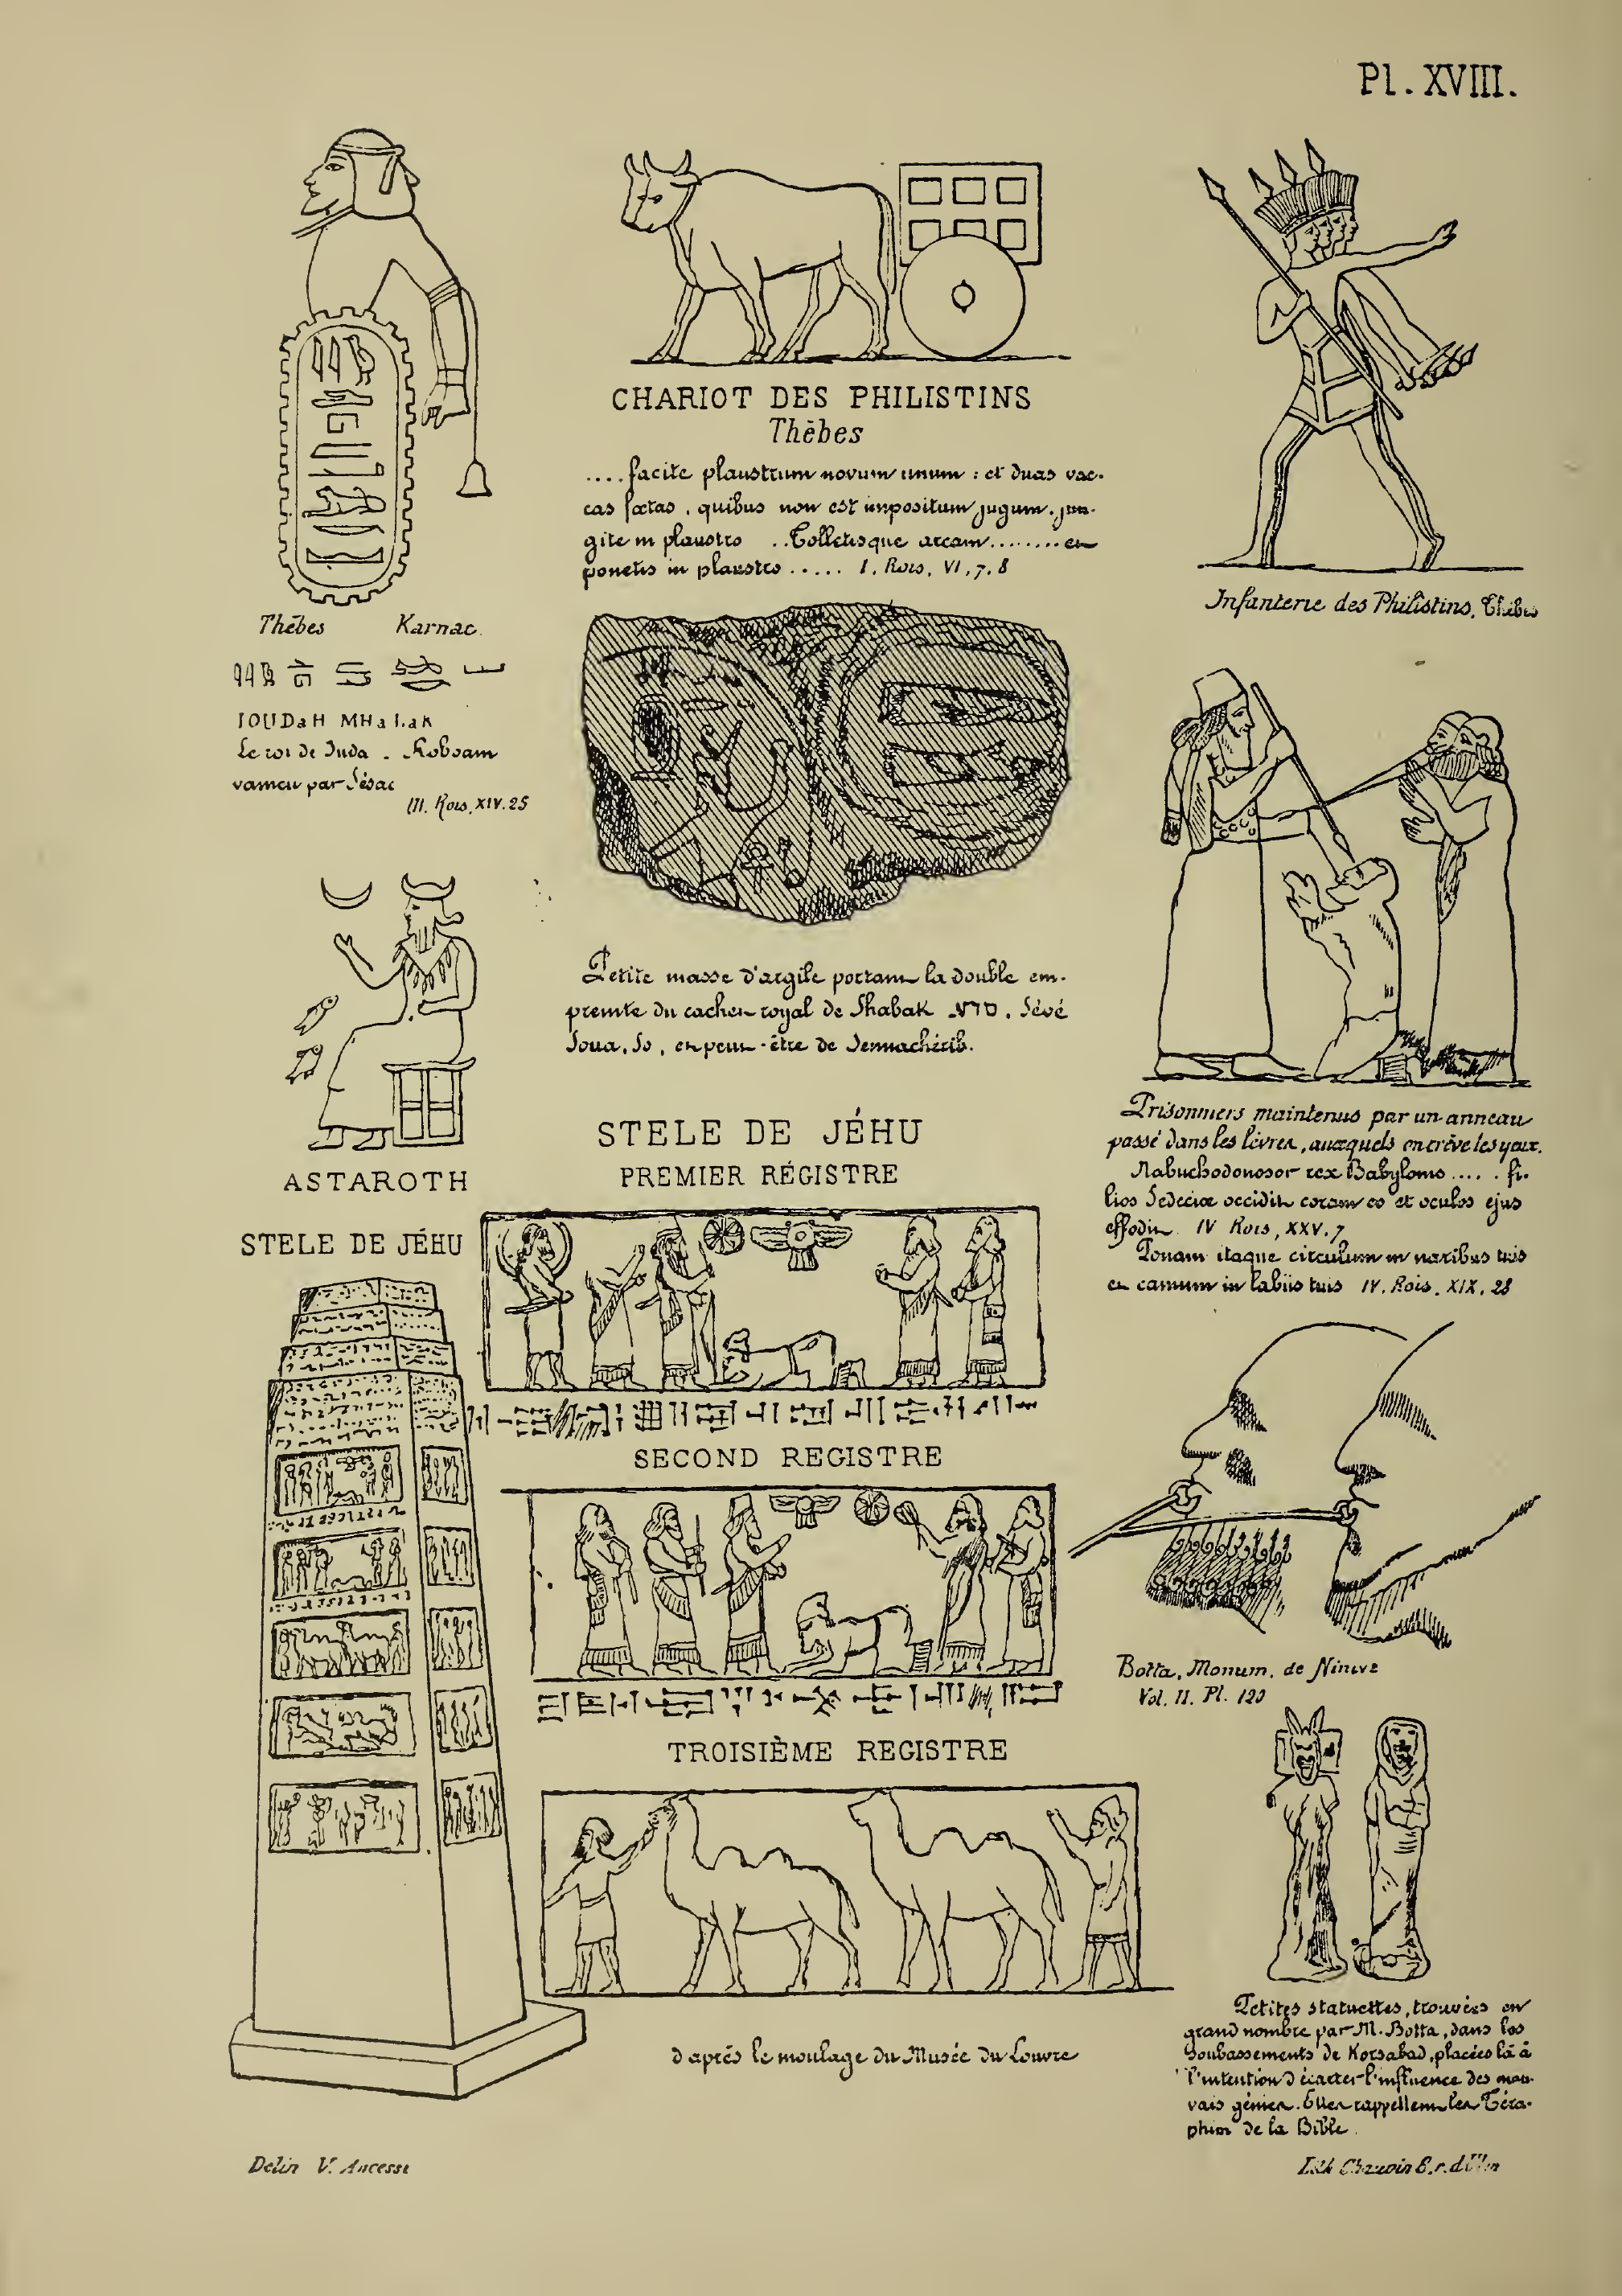 Pl. XVIII.
CHARIOT DES PHILISTINS
Thèbes
....facite plaustrum novum unum : et duas vac-
cas fœtas, quibus non est impositum jugum. jun-
gite in plaustro ..Tolletisque arcam........et
ponetis in plaustro ..... I. Rois, VI, 7, 8
Infanterie des Philistins, Thèbes
Thèbes Karnac.
IOUDaH MHaLaK
Le roi de Juda . Roboam
vaincu par Sésac
III. Rois, XIV. 25
ASTAROTH
Petite masse d'argile portant la double em-
preinte du cachet royal de Shabak סוא. Sévé
Soua, So, et peut-être de Sennachérib.
Prisonniers maintenus par un anneau
passé dans les lèvres, auxquels on crève les yeux.
Nabuchodonosor rex Babylonis .... . fi-
lios Sedeciæ occidit coram eo et oculos ejus
effodit. IV Rois, XXV, 7
Ponam itaque circulum in naribus tuis
et camum in labiis tuis IV. Rois. XIX. 28
STELE DE JÉHU
STELE DE JÉHU
PREMIER RÉGISTRE
SECOND REGISTRE
TROISIÈME REGISTRE
d'après le moulage du Musée du Louvre
Botta, Monum. de Ninive
Vol. II. Pl. 120
Petites statuettes, trouvées en
grand nombre par M. Botta, dans les
Soubassements de Korsabad, placées là à
l'intention d'écarter l'influence des mau-
vais génies. Elles rappellent les Téra-
phim de la Bible.
Delin V. Ancessi
Lith Chauvin B. r. d'Ulm